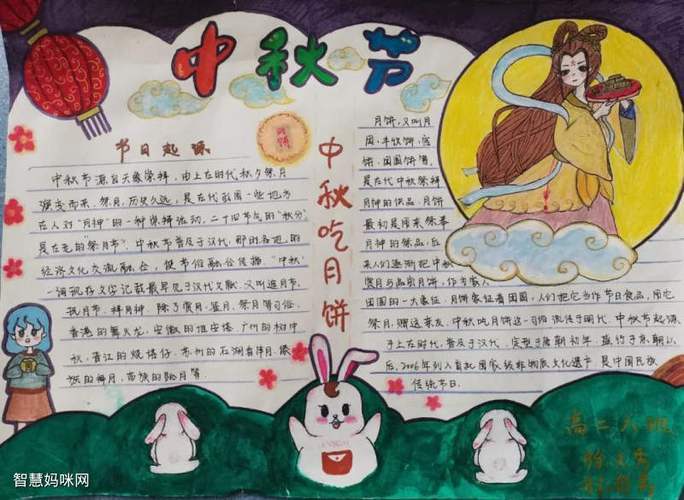 中秋节
节日起源
中秋节源自天象崇拜，由上古时代秋夕祭月
演变而来。祭月，历史久远，是古代我国一些地方
古人对"月神"的一种崇拜活动，二十四节气的"秋分"
是古老的"祭月节"。中秋节普及于汉代，那时各地的
经济文化交流融合，使节俗融合传播。"中秋"
一词现存文字记载最早见于汉代文献。又叫追月节、
玩月节、拜月神。除了赏月、鉴月、祭月等习俗，
香港的舞火龙、安徽的堆宝塔、广州的树中
秋、晋江的烧塔仔、苏州的石湖看串月、傣
族的拜月、苗族的跳月等
月饼
中秋吃月饼
月饼，又叫月
团、丰收饼、宫
饼、团圆饼等，
是古代中秋祭拜
月神的供品。月饼
最初是用来祭奉
月神的祭品，后
来人们逐渐把中秋
赏月与品尝月饼，作为家人
团圆的一大象征，月饼象征着团圆，人们把它当作节日食品，用它
祭月、赠送亲友。中秋吃月饼这一习俗流传于明代。中秋节起源
于上古时代，普及于汉代，定型于唐朝初年，盛行于宋朝以
后，2006年列入首批国家级非物质文化遗产，是中国民族
传统节日。
高二六班
智慧妈咪网